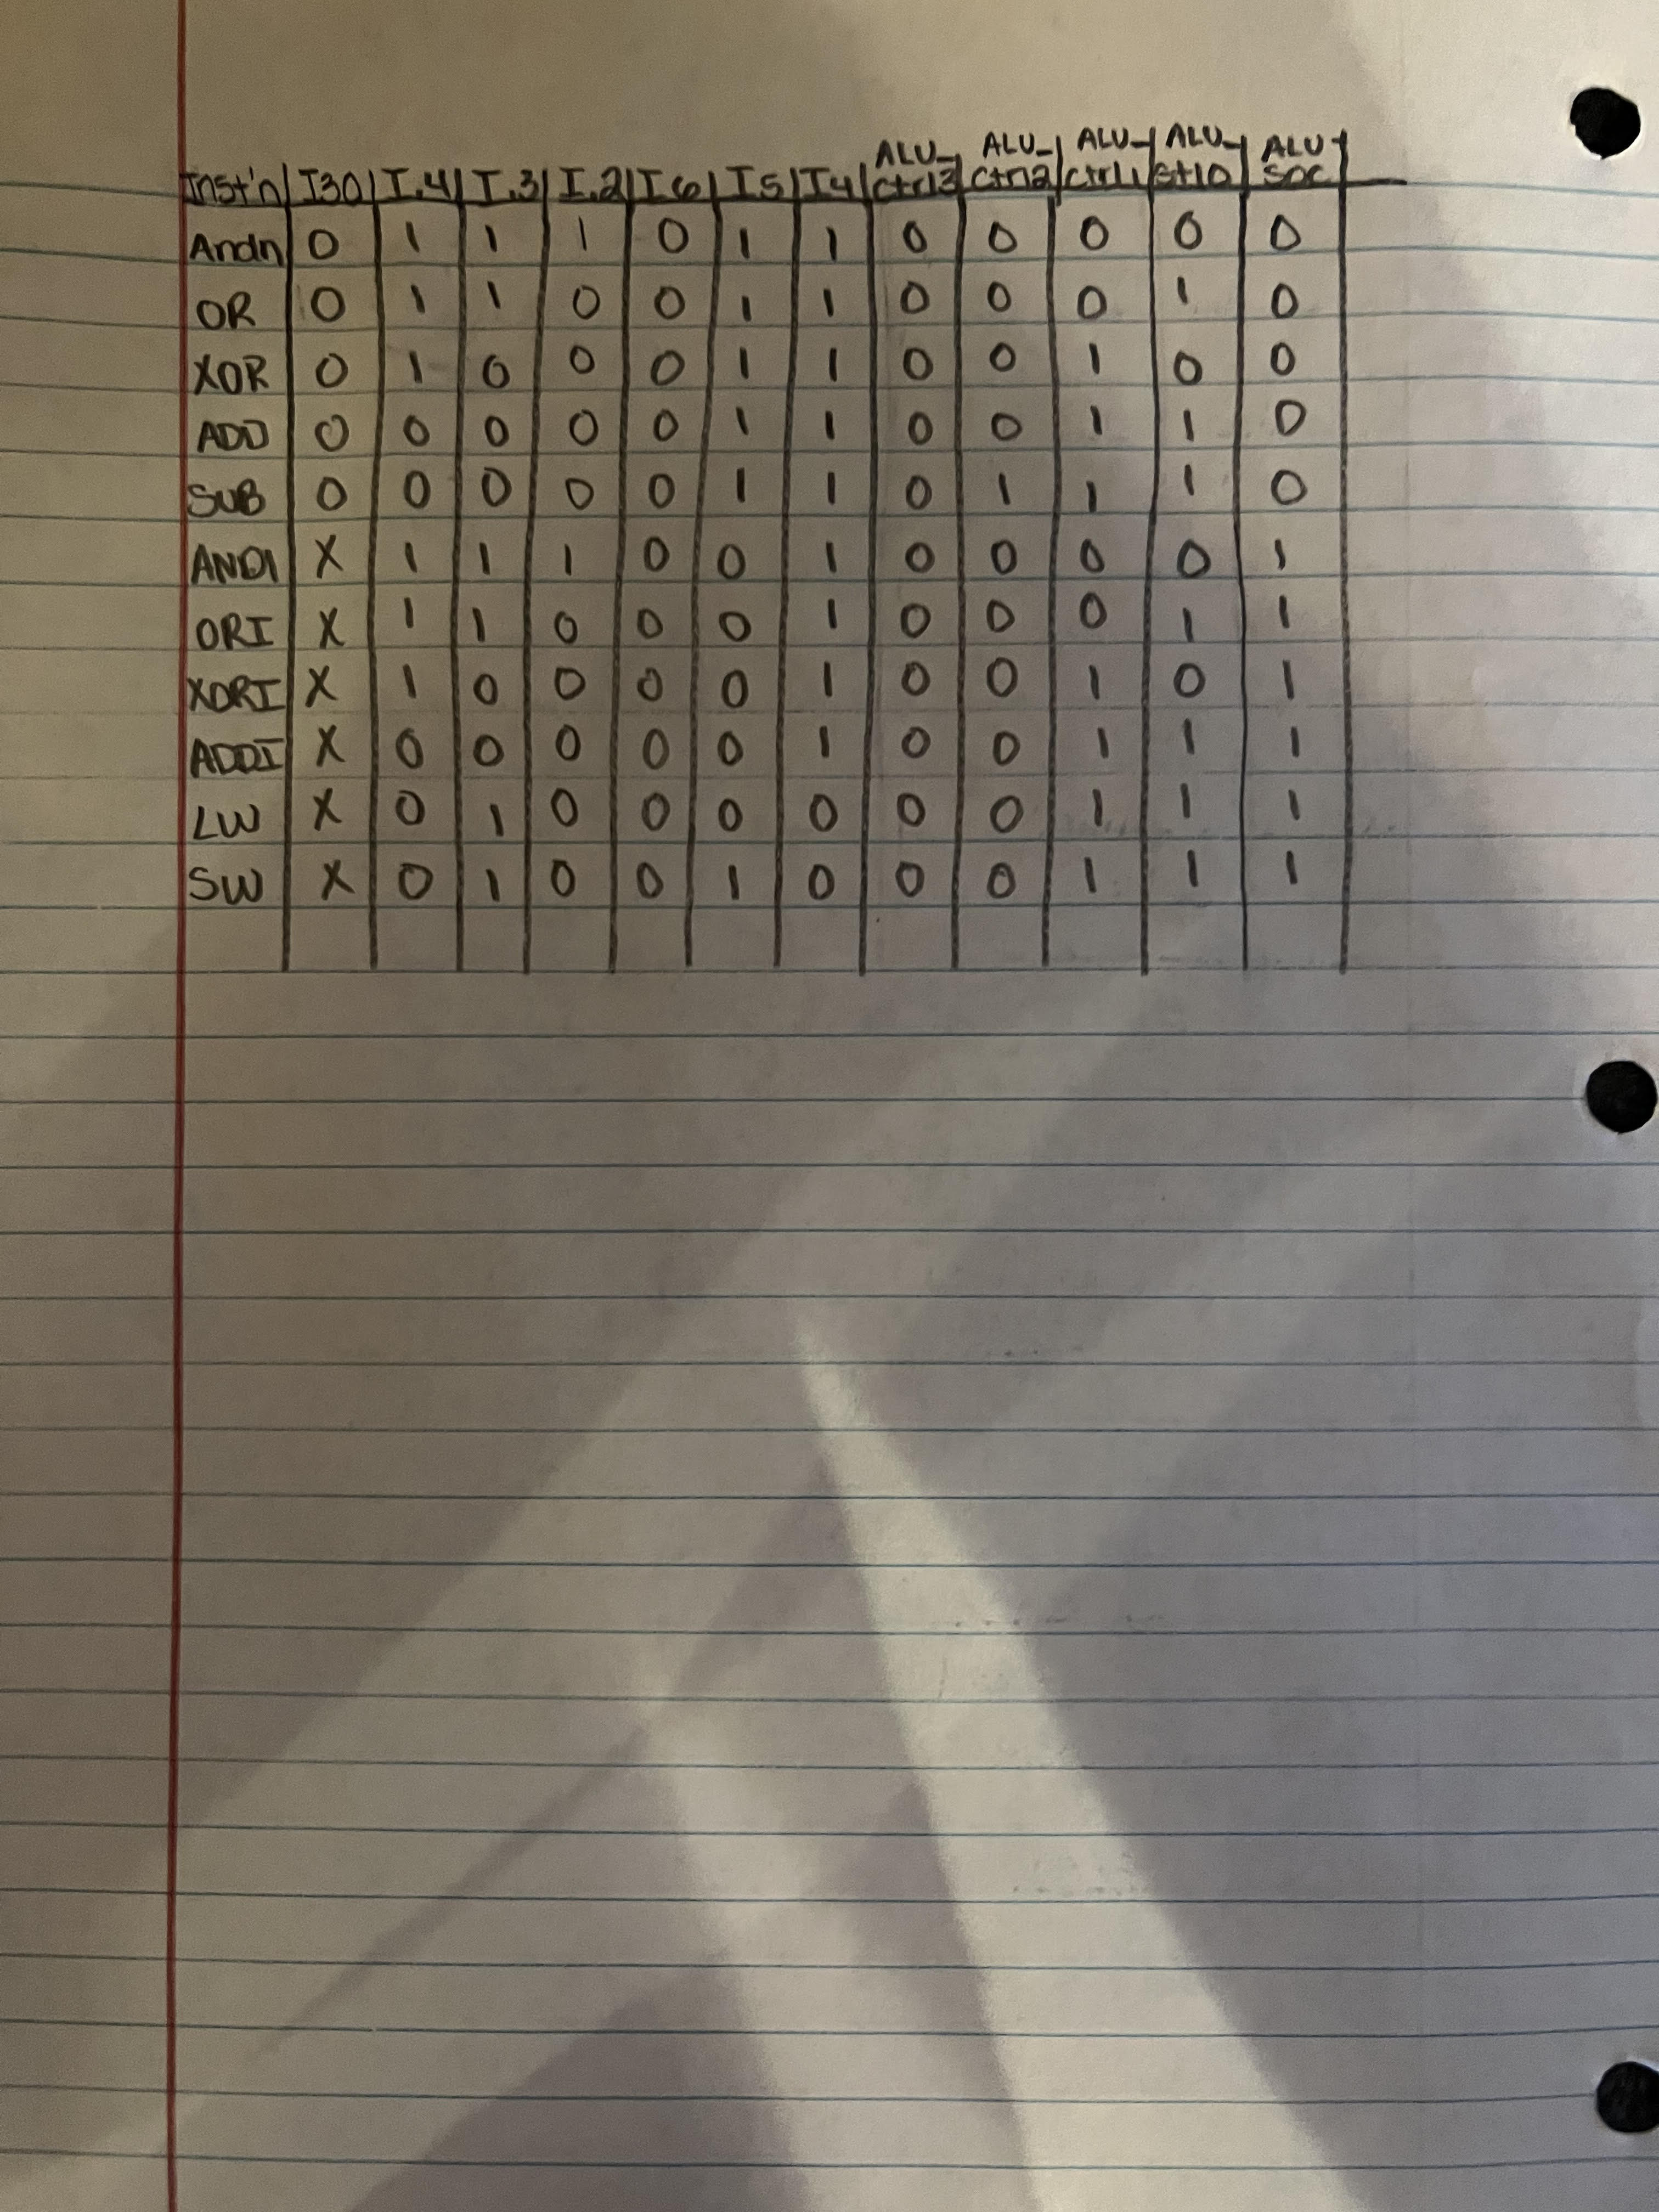 Inst'n | I30 | I.4 | I.3 | I.2 | I6 | I5 | I4 | ALU_ Ctrl3 | ALU_ Ctrl2 | ALU_ Ctrl1 | ALU_ Ctrl0 | ALU SRC
Andn | 0 | 1 | 1 | 1 | 0 | 1 | 1 | 0 | 0 | 0 | 0 | 0
OR | 0 | 1 | 1 | 0 | 0 | 1 | 1 | 0 | 0 | 0 | 1 | 0
XOR | 0 | 1 | 0 | 0 | 0 | 1 | 1 | 0 | 0 | 1 | 0 | 0
ADD | 0 | 0 | 0 | 0 | 0 | 1 | 1 | 0 | 0 | 1 | 1 | 0
SUB | 0 | 0 | 0 | 0 | 0 | 1 | 1 | 0 | 1 | 1 | 1 | 0
ANDI | X | 1 | 1 | 1 | 0 | 0 | 1 | 0 | 0 | 0 | 0 | 1
ORI | X | 1 | 1 | 0 | 0 | 0 | 1 | 0 | 0 | 0 | 1 | 1
XORI | X | 1 | 0 | 0 | 0 | 0 | 1 | 0 | 0 | 1 | 0 | 1
ADDI | X | 0 | 0 | 0 | 0 | 0 | 1 | 0 | 0 | 1 | 1 | 1
LW | X | 0 | 1 | 0 | 0 | 0 | 0 | 0 | 0 | 1 | 1 | 1
SW | X | 0 | 1 | 0 | 0 | 1 | 0 | 0 | 0 | 1 | 1 | 1